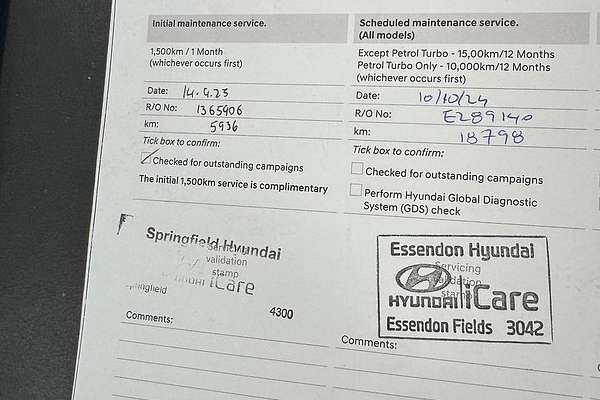 Initial maintenance service.
1,500km / 1 Month
(whichever occurs first)
Date: 14.9.23
R/O No: 1365906
km: 5936
Tick box to confirm:
Checked for outstanding campaigns
The initial 1,500km service is complimentary
Springfield Hyundai
Servicing
validation
stamp
iCare
Springfield
4300
Comments:
Scheduled maintenance service.
(All models)
Except Petrol Turbo - 15,00km/12 Months
Petrol Turbo Only - 10,000km/12 Months
(whichever occurs first)
Date: 10/10/24
R/O No: E289140
km: 18798
Tick box to confirm:
Checked for outstanding campaigns
Perform Hyundai Global Diagnostic
System (GDS) check
Essendon Hyundai
Servicing
validation
stamp
HYUNDAI iCare
Essendon Fields 3042
Comments: